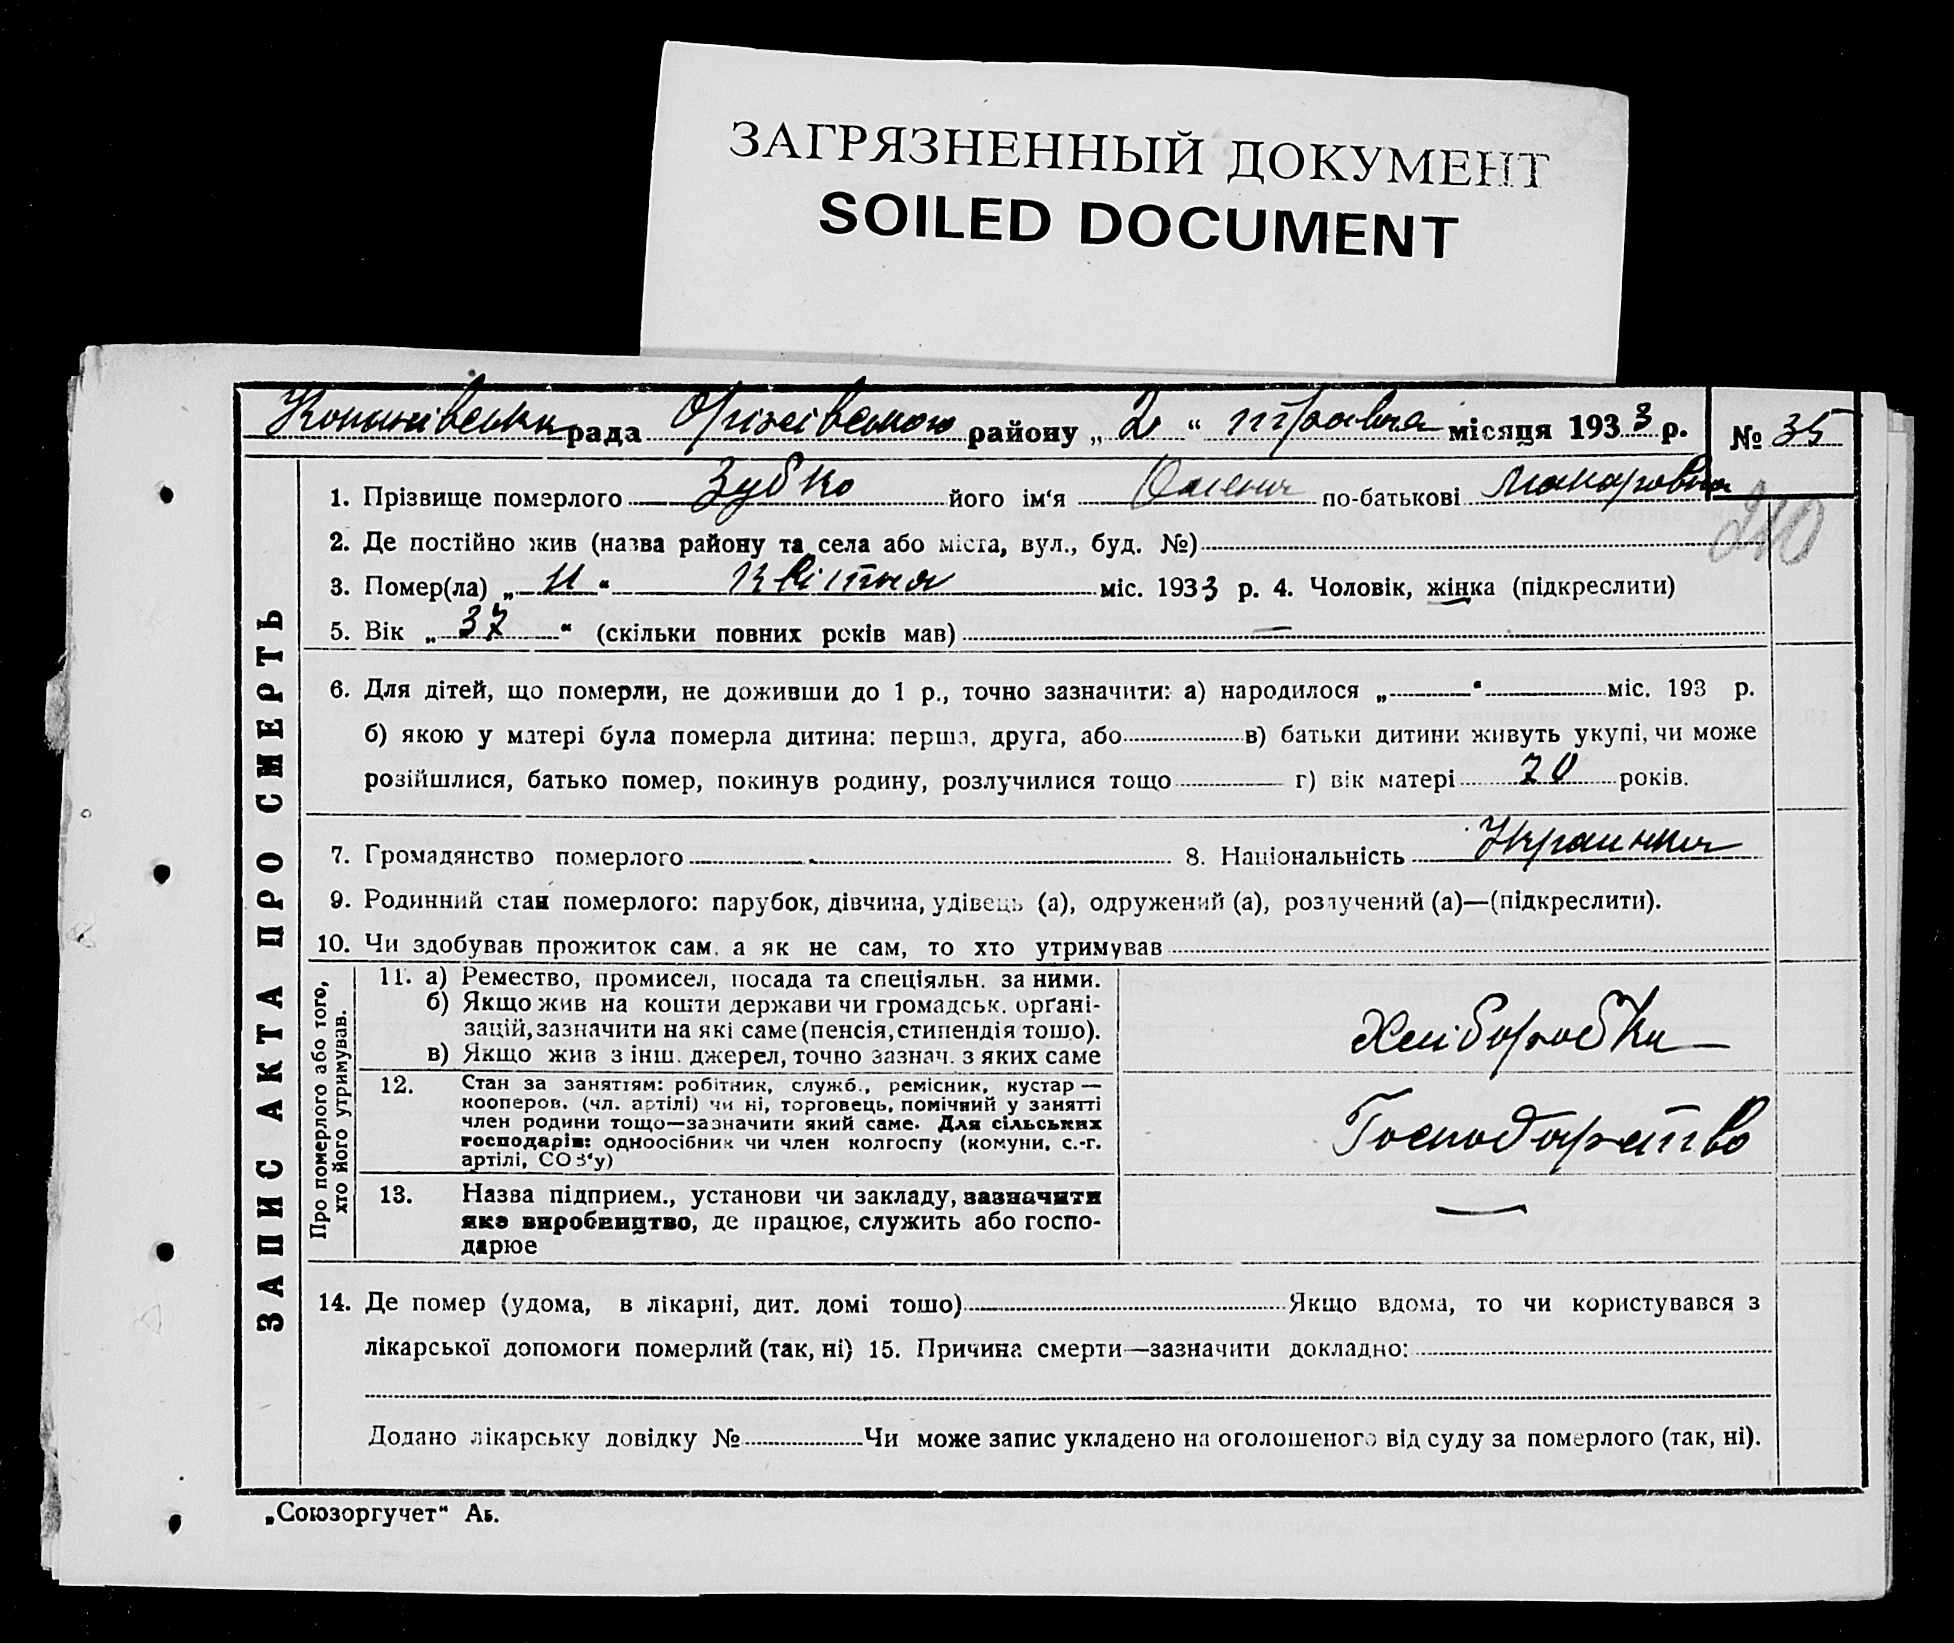 ЗАГРЯЗНЕННЫЙ ДОКУМЕНТ
SOILED DOCUMENT
рада Оріхівського району „ 2 “ травня місяця 1933 р. № 35
1. Прізвище померлого Зубко його ім‘я Олена по-батькові Макаровна
210
2. Де постійно жив (назва району та села або міста, вул., буд. №)
3. Помер(ла) „ 11 “ Квітня міс. 1933 р. 4. Чоловік, жінка (підкреслити)
5. Вік „ 37 “ (скільки повних років мав) —
6. Для дітей, що померли, не доживши до 1 р., точно зазначити: а) народилося „ “ міс. 193 р.
б) якою у матері була померла дитина: перша, друга, або в) батьки дитини живуть укупі, чи може
розійшлися, батько помер, покинув родину, розлучилися тощо г) вік матері 70 років.
7. Громадянство померлого 8. Національність Украинка
9. Родинний стан померлого: парубок, дівчина, удівець (а), одружений (а), розлучений (а)—(підкреслити).
10. Чи здобував прожиток сам, а як не сам, то хто утримував
ЗАПИС АКТА ПРО СМЕРТЬ
Про померлого або того,
хто його утримував.
11. а) Ремество, промисел, посада та спеціяльн. за ними.
б) Якщо жив на кошти держави чи громадськ. орґані-
зацій, зазначити на які саме (пенсія, стипендія тощо).
в) Якщо жив з інш. джерел, точно зазнач. з яких саме
Хліборобка
12. Стан за заняттям: робітник, служб., ремісник, кустар —
кооперов. (чл. артілі) чи ні, торговець, помічний у занятті
член родини тощо—зазначити який саме. Для сільських
господарів: одноосібник чи член колгоспу (комуни, с.-г.
артілі, СОЗ‘у)
Господарство
13. Назва підприєм., установи чи закладу, зазначити
яке виробництво, де працює, служить або госпо-
дарює
—
14. Де помер (удома, в лікарні, дит. домі тощо) Якщо вдома, то чи користувався з
лікарської допомоги померлий (так, ні) 15. Причина смерти—зазначити докладно:
Додано лікарську довідку № Чи може запис укладено на оголошеного від суду за померлого (так, ні).
„Союзоргучет“ Аб.